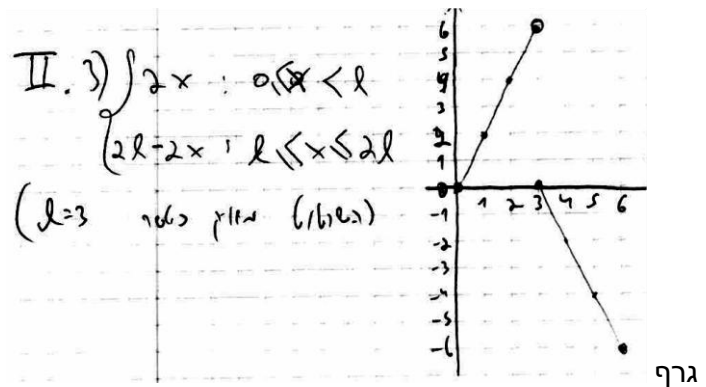 II. 3) { 2x : 0 ≤ x < l
2l-2x : l ≤ x ≤ 2l
(l=3 כאשר
6
3
2
1
0
-1
-2
-3
-4
-5
-6
1 2 3 4 5 6
גרף